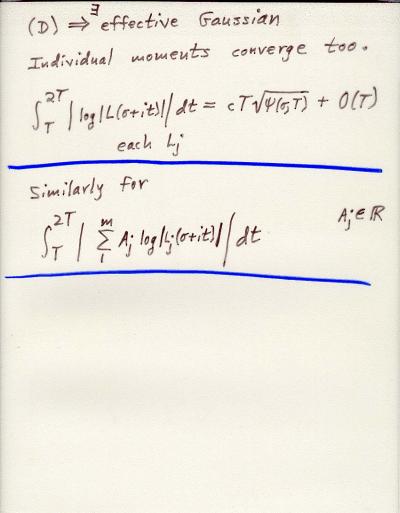 (D) ⇒ ∃ effective Gaussian
Individual moments converge too.
∫_T^{2T} | log |L(σ+it)| | dt = cT√Ψ(σ,T) + O(T)
each L_j
Similarly for
∫_T^{2T} | Σ_1^m A_j log |L_j(σ+it)| | dt A_j ∈ ℝ